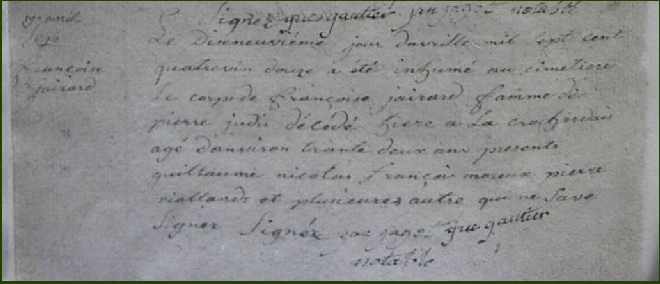 Signez que gautier notable
19 avril
Le Dinneuvième jour davrille mil sept cent
françoise
jairard
quatrevin douze a été inhumé au cimetiere
Le corps de françoise jairard famme de
pierre judis décédé hiere a La
agé danviron trante deux ans presents
guillaume nicolas françois moreux pierre
viallards et plusieures autre qui ne save
Signer Signéz que gautier
notable